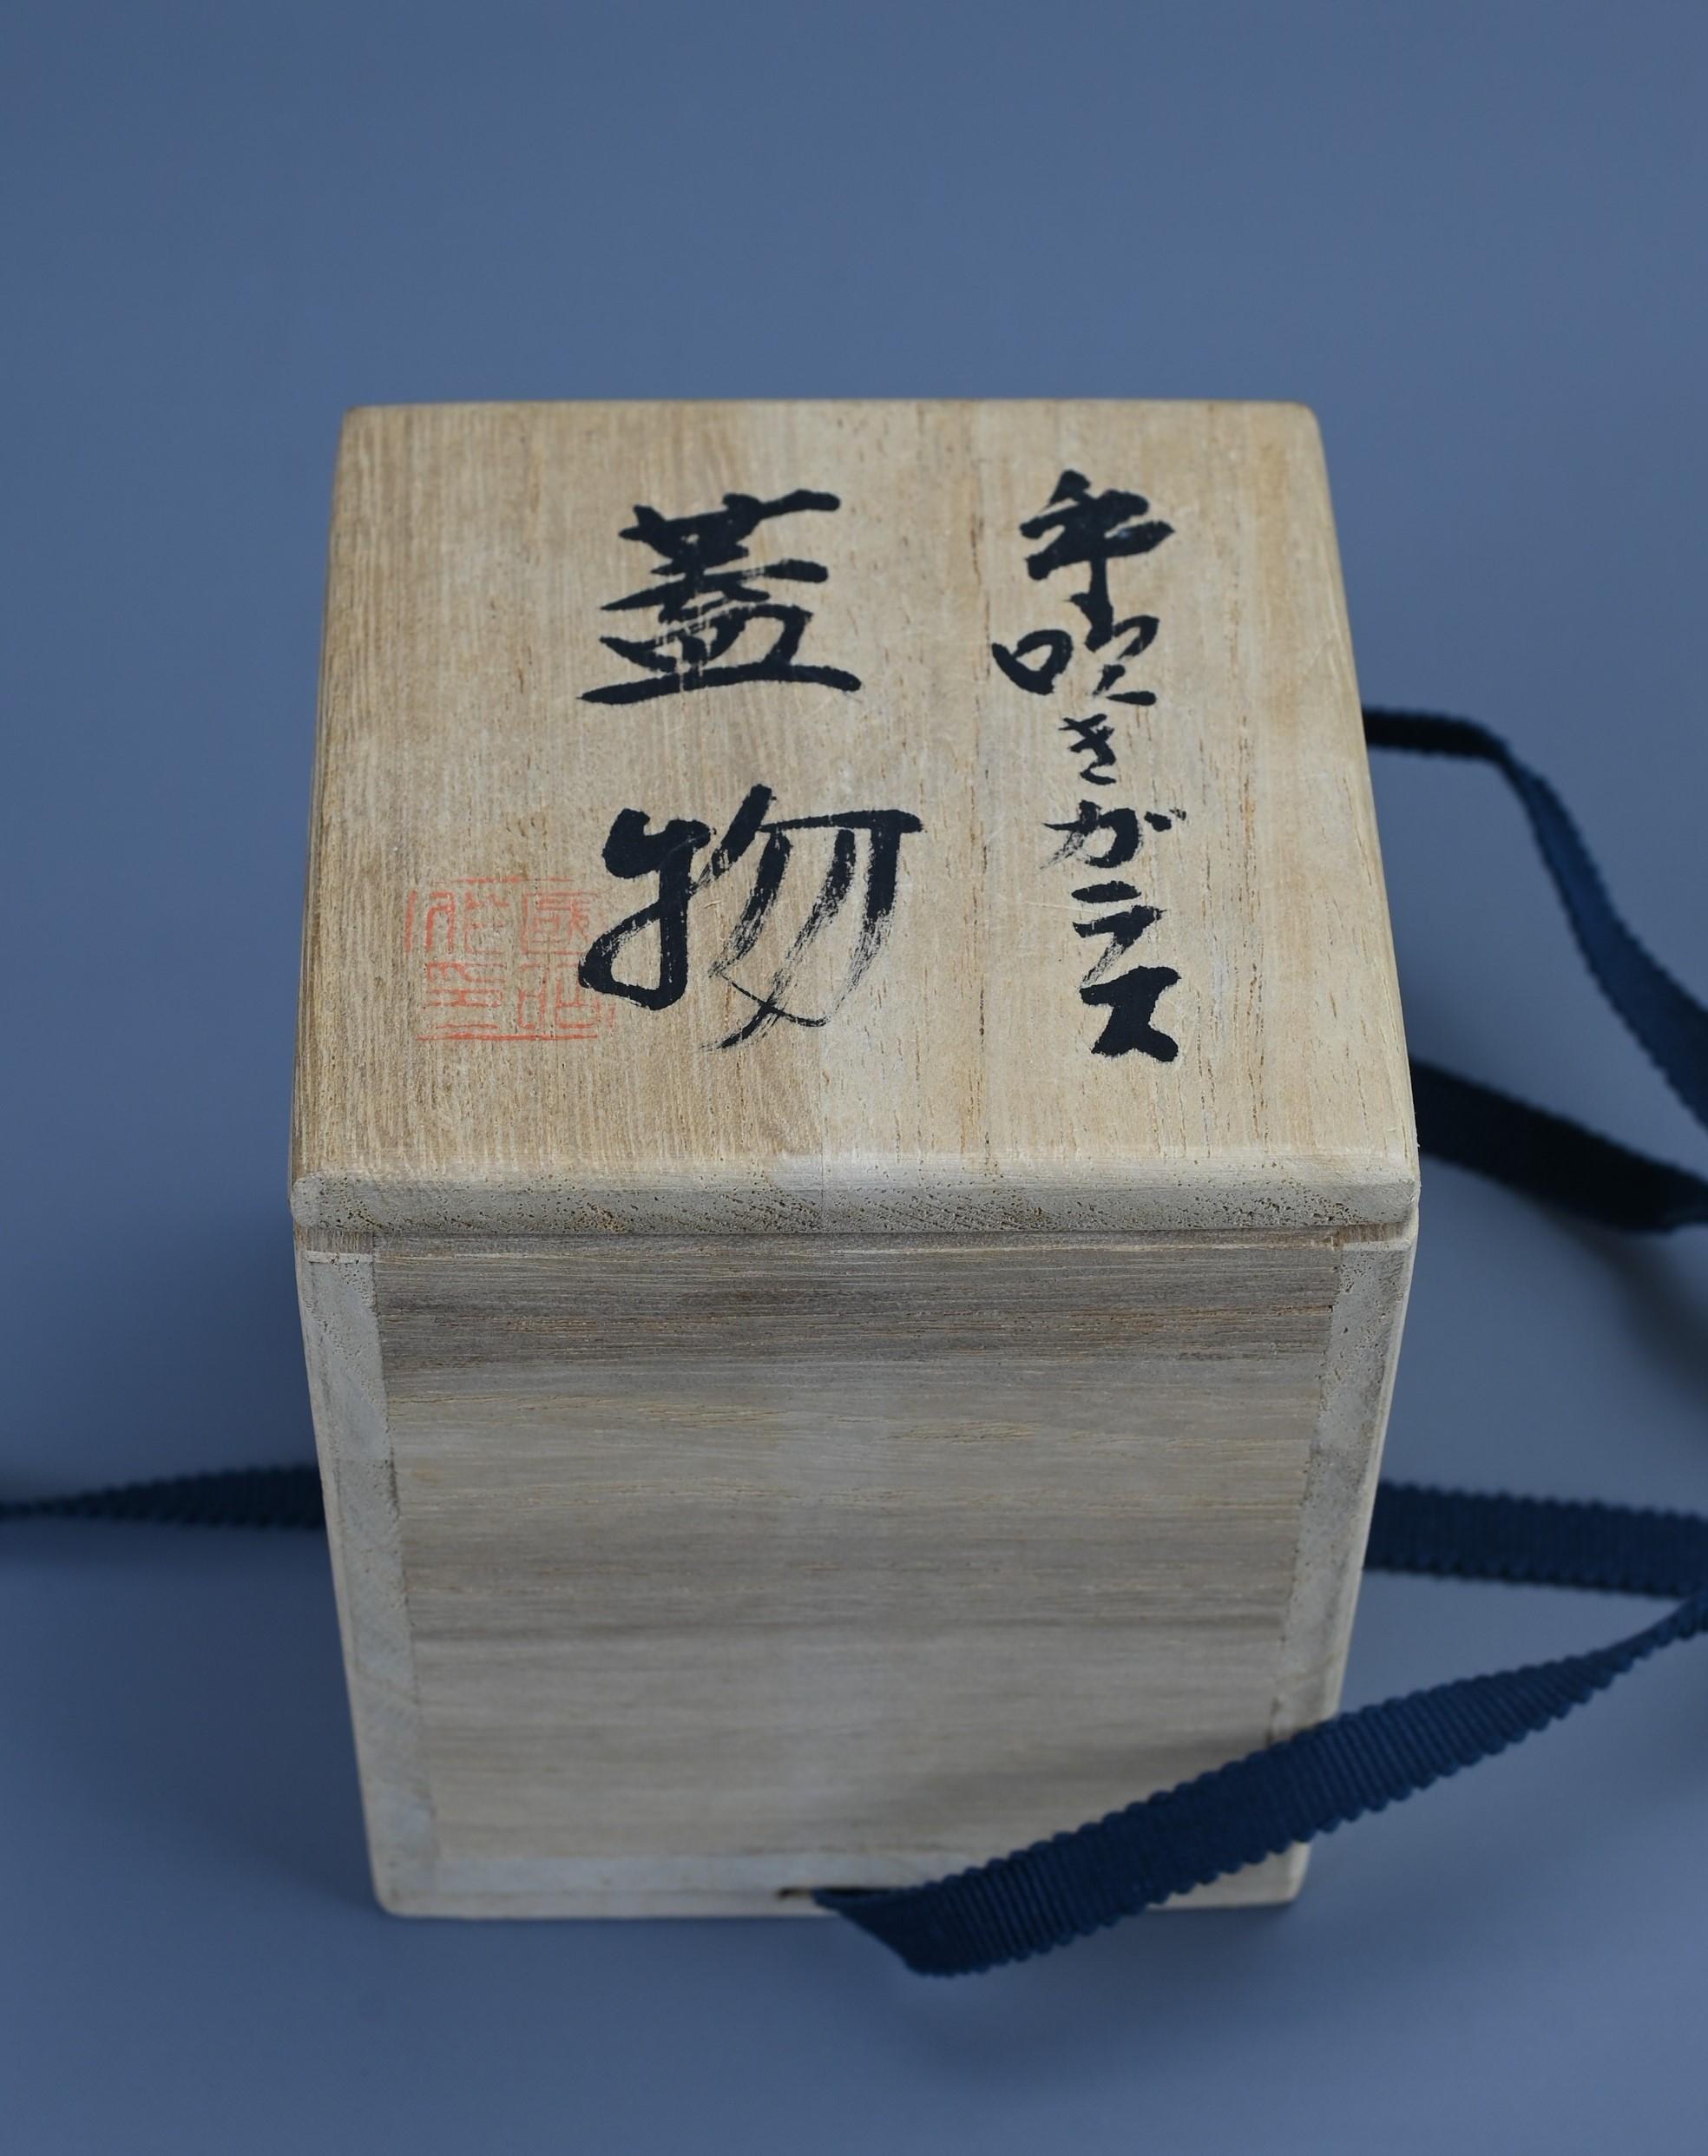 手吹きガラス
蓋物